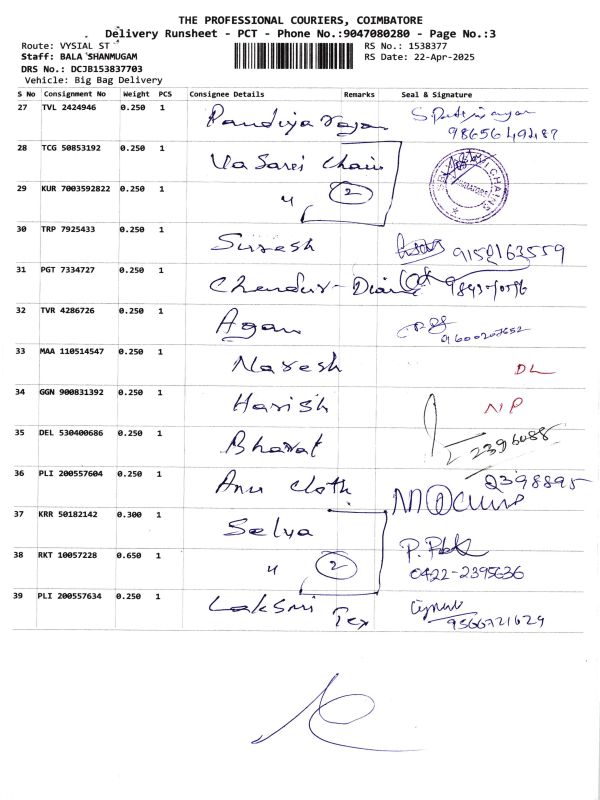 THE PROFESSIONAL COURIERS, COIMBATORE
Delivery Runsheet - PCT - Phone No.:9047080280 - Page No.:3
Route: VYSIAL ST
RS No.: 1538377
Staff: BALA SHANMUGAM
RS Date: 22-Apr-2025
DRS No.: DCJB153837703
Vehicle: Big Bag Delivery
S No Consignment No Weight PCS Consignee Details Remarks Seal & Signature
27 TVL 2424946 0.250 1 Pandiya rajan
28 TCG 50853192 0.250 1 Va Sarei Chain
29 KUR 7003592822 0.250 1 " 2
30 TRP 7925433 0.250 1 Suresh 9150163559
31 PGT 7334727 0.250 1 Chendur - Diam
32 TVR 4286726 0.250 1 Agan
33 MAA 110514547 0.250 1 Naresh DL
34 GGN 900831392 0.250 1 Harish NP
35 DEL 530400686 0.250 1 Bharat 2396088
36 PLI 200557604 0.250 1 Anu Cloth 2398895
37 KRR 50182142 0.300 1 Selva
38 RKT 10057228 0.650 1 " 2 0422-2395636
39 PLI 200557634 0.250 1 Laksmi Tex 9566721629